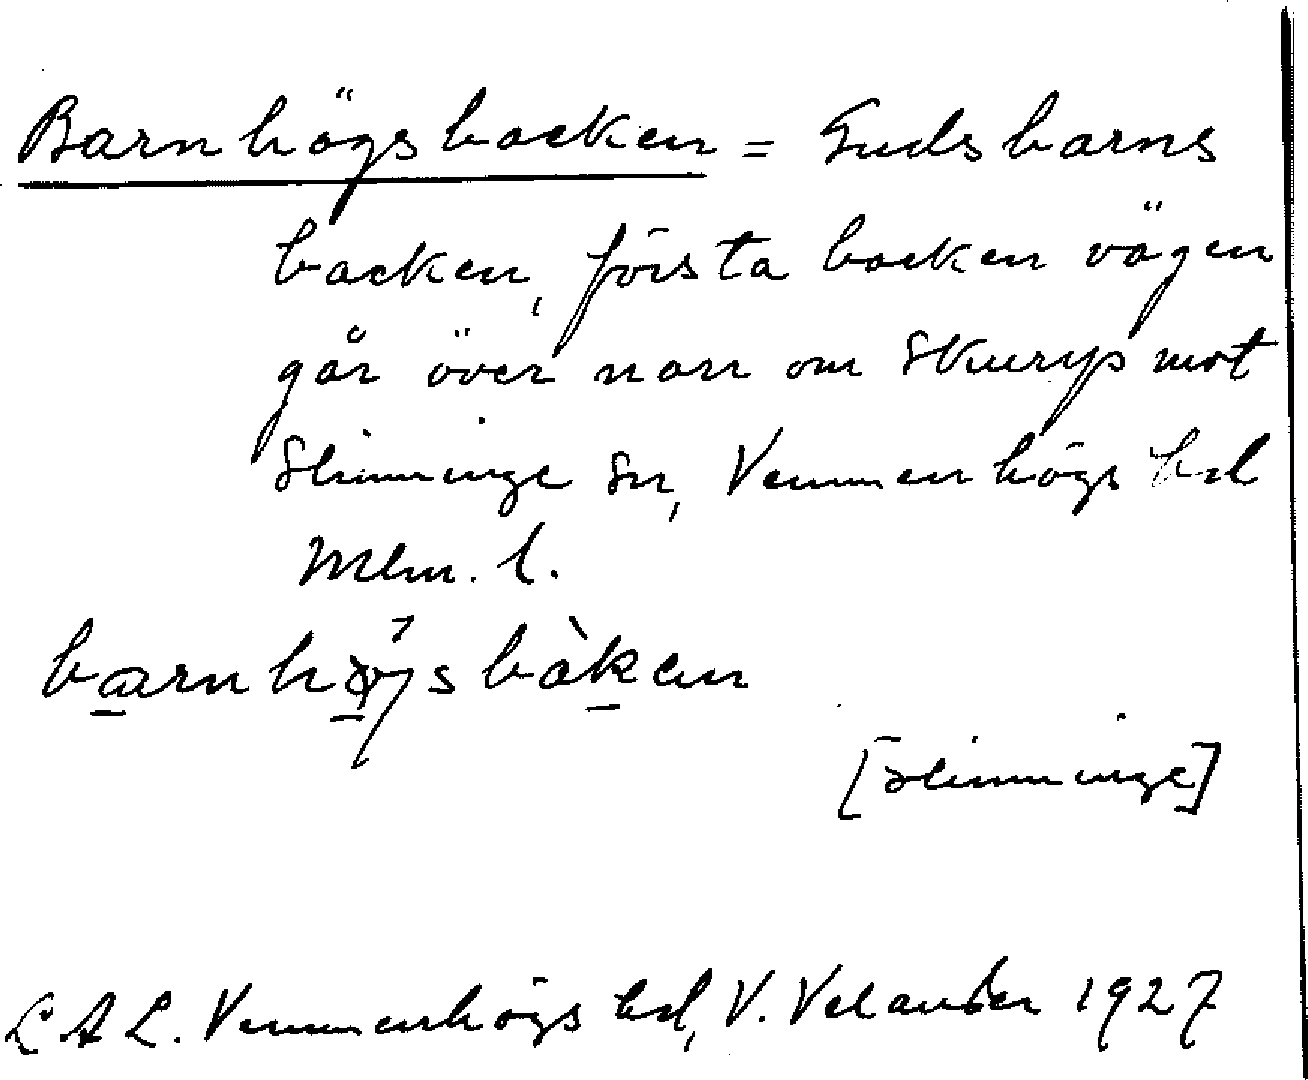 Barnhögsbacken = Gudsbarns
backen, första backen vägen
går över norr om Skurup mot
Slimminge sn, Vemmenhögs hd
Mlm. l.
barnhøysbàken
[Slimminge]
LAL. Vemmenhögs hd, V. Velander 1927